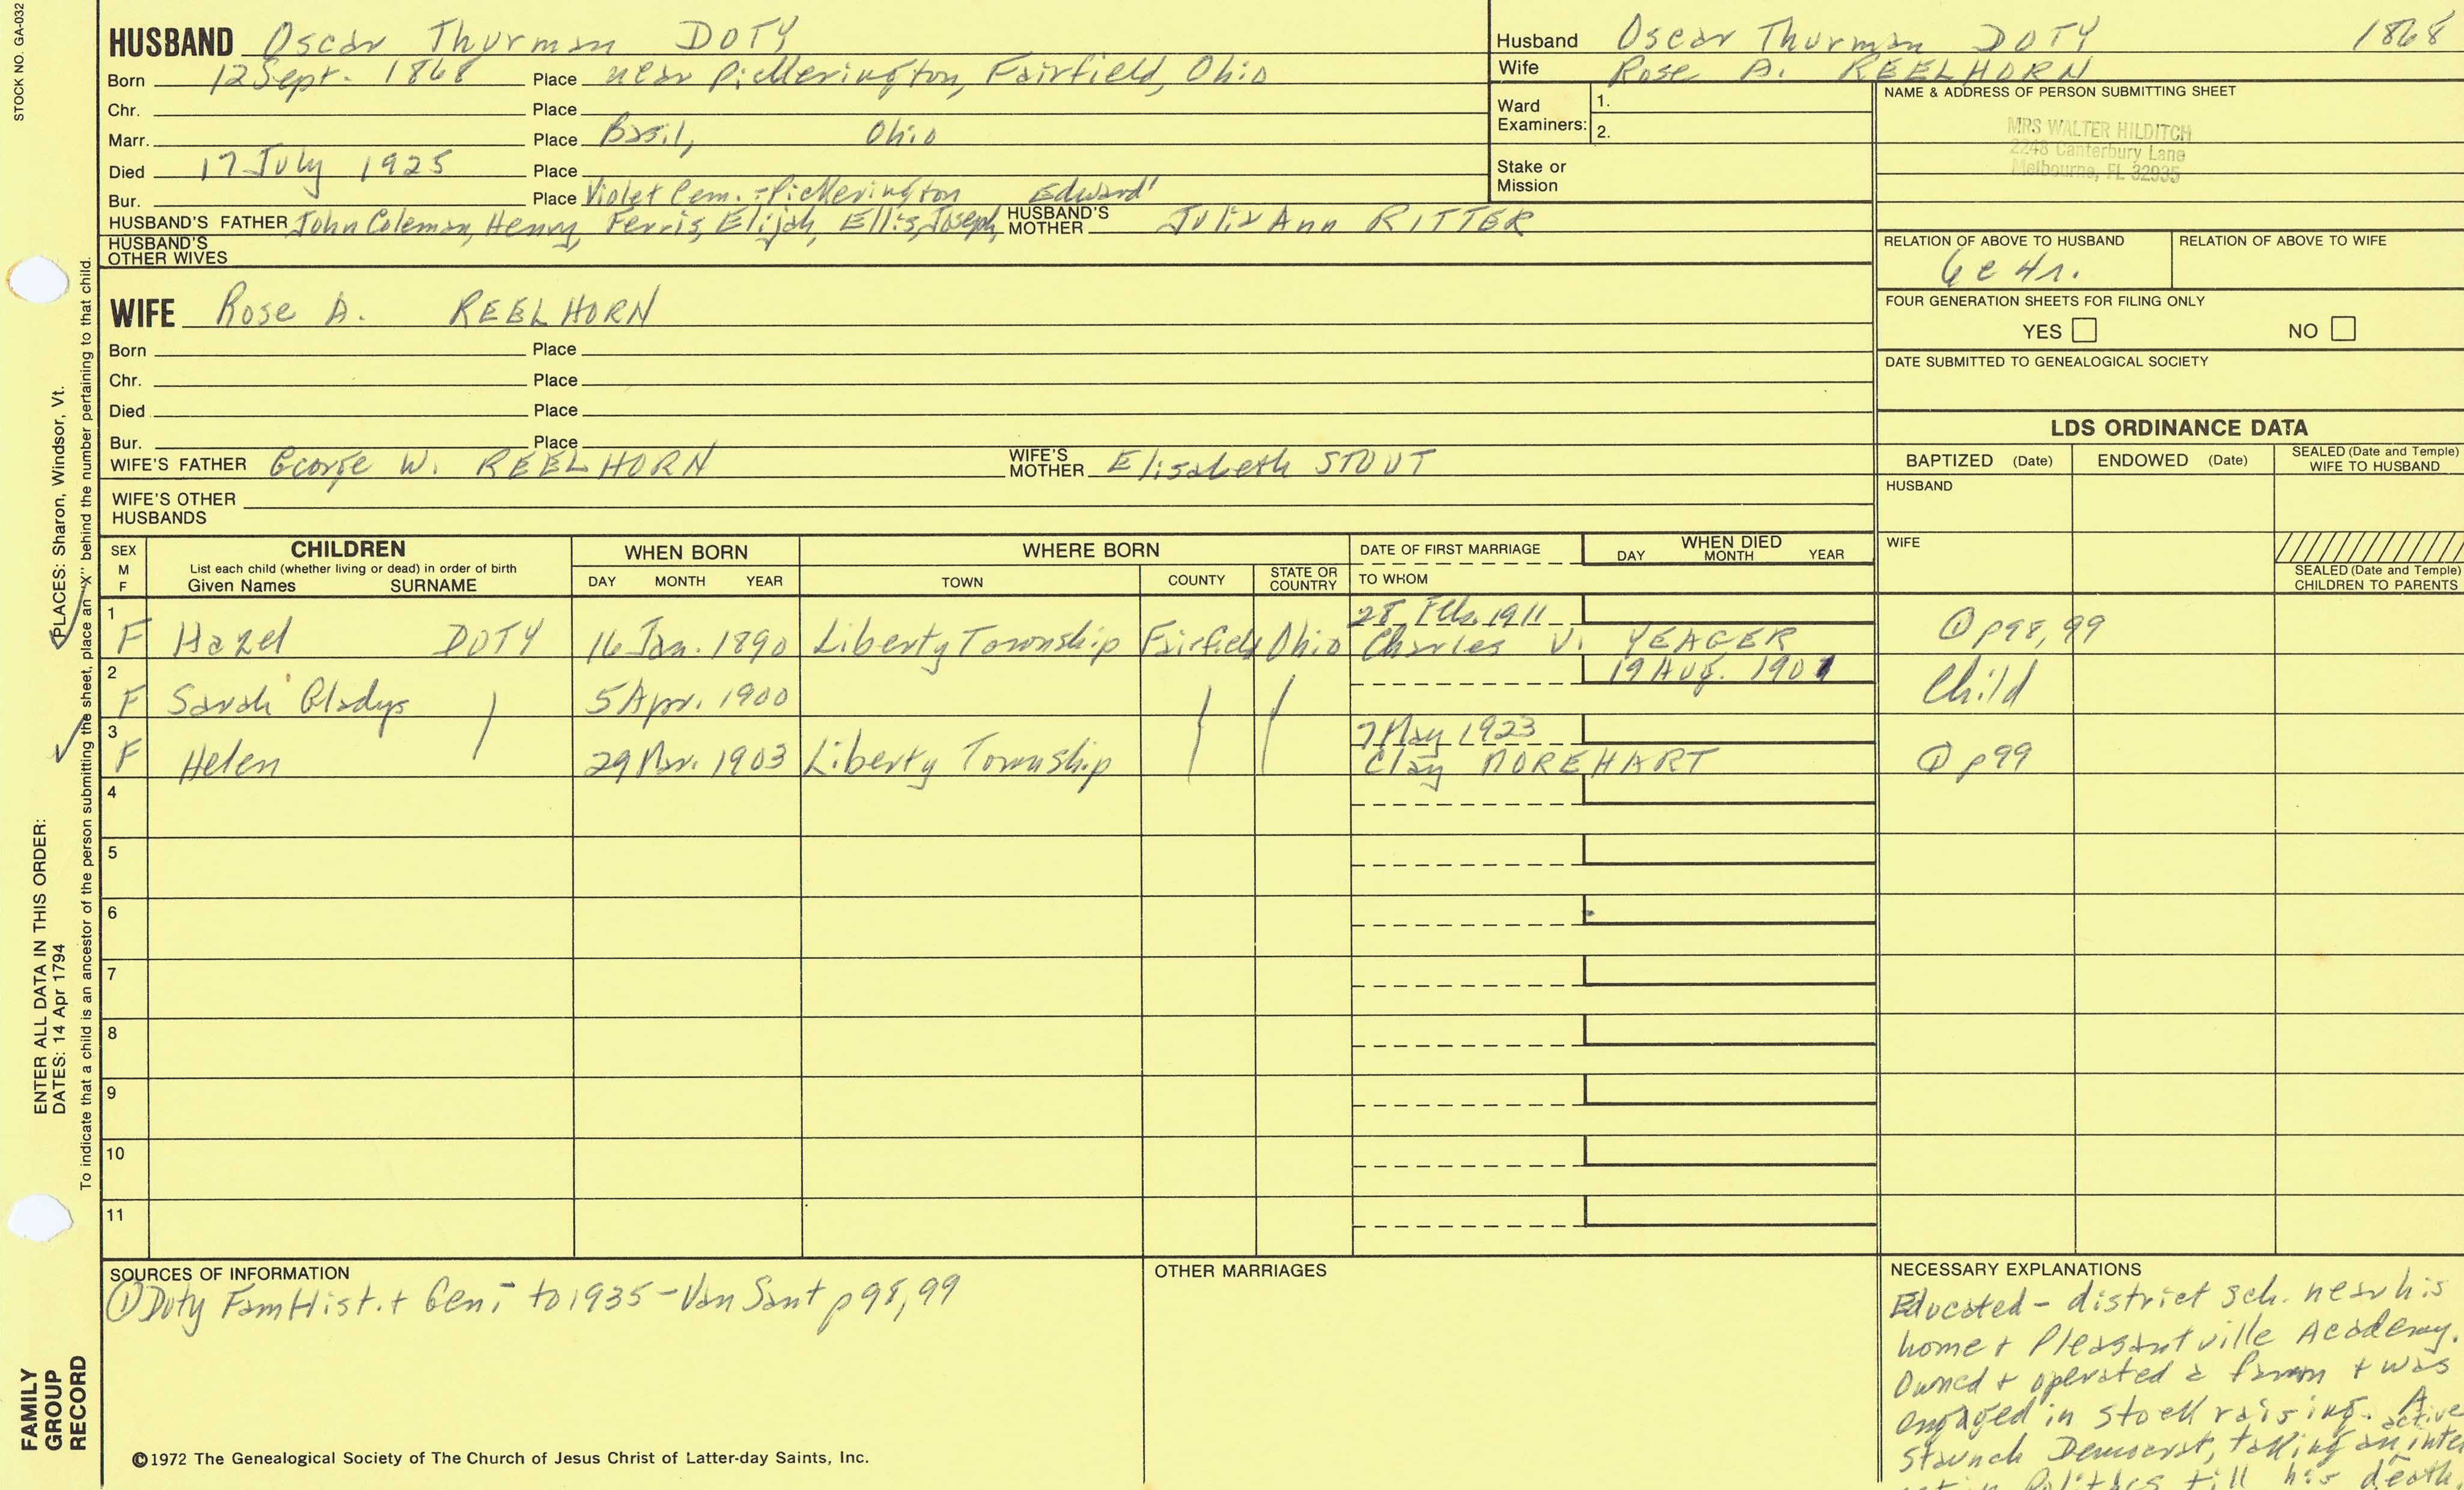 STOCK NO. GA-032
HUSBAND Oscar Thurman DOTY
Born 12 Sept. 1868 Place near Pickerington, Fairfield, Ohio
Chr. Place
Marr. Place Basil, Ohio
Died 17 July 1925 Place
Bur. Place Violet Cem. - Pickerington Edward'
HUSBAND'S FATHER John Coleman, Henry, Ferris, Elijah, Ellis, Joseph, HUSBAND'S MOTHER Julia Ann RITTER
HUSBAND'S OTHER WIVES
Husband Oscar Thurman DOTY 1868
Wife Rose A. REELHORN
Ward Examiners: 1.
2.
Stake or Mission
NAME & ADDRESS OF PERSON SUBMITTING SHEET
MRS WALTER HILDITCH
2248 Canterbury Lane
Melbourne, FL 32935
RELATION OF ABOVE TO HUSBAND RELATION OF ABOVE TO WIFE
6c4r.
FOUR GENERATION SHEETS FOR FILING ONLY
YES NO
DATE SUBMITTED TO GENEALOGICAL SOCIETY
WIFE Rose A. REELHORN
Born Place
Chr. Place
Died Place
Bur. Place
WIFE'S FATHER George W. REELHORN WIFE'S MOTHER Elisabeth STOUT
WIFE'S OTHER HUSBANDS
LDS ORDINANCE DATA
BAPTIZED (Date) ENDOWED (Date) SEALED (Date and Temple) WIFE TO HUSBAND
HUSBAND
WIFE
SEALED (Date and Temple) CHILDREN TO PARENTS
SEX M F
CHILDREN
List each child (whether living or dead) in order of birth
Given Names SURNAME
WHEN BORN
DAY MONTH YEAR
WHERE BORN
TOWN COUNTY STATE OR COUNTRY
DATE OF FIRST MARRIAGE
TO WHOM
WHEN DIED
DAY MONTH YEAR
1 28 Feb. 1911
F Hazel DOTY 16 Jan. 1890 Liberty Township Fairfield Ohio Charles V. YEAGER ① p98, 99
2 19 Aug. 1901
F Sarah Gladys 5 Apr. 1900 Child
3 7 May 1923
F Helen 29 Mar. 1903 Liberty Township Clay MOREHART ① p99
4
5
6
7
8
9
10
11
SOURCES OF INFORMATION
① Doty Fam Hist. + Gen. - to 1935 - Van Sant p 98, 99
OTHER MARRIAGES
NECESSARY EXPLANATIONS
Educated - district sch. near his
home + Pleasantville Academy.
Owned + operated a farm + was
engaged in stock raising. A
staunch Democrat, taking an active inte
Politics till his death.
©1972 The Genealogical Society of The Church of Jesus Christ of Latter-day Saints, Inc.
FAMILY
GROUP
RECORD
ENTER ALL DATA IN THIS ORDER:
DATES: 14 Apr 1794
PLACES: Sharon, Windsor, Vt.
To indicate that a child is an ancestor of the person submitting the sheet, place an "X" behind the number pertaining to that child.